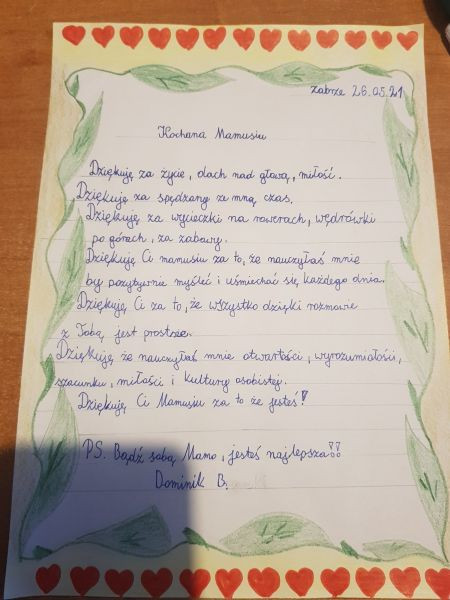 Zabrze 26.05.21
Kochana Mamusiu
Dziękuję za życie, dach nad głową, miłość.
Dziękuję za spędzany ze mną czas.
Dziękuję za wycieczki na rowerach, wędrówki
po górach, za zabawy.
Dziękuję Ci mamusiu za to, że nauczyłaś mnie
by pozytywnie myśleć i uśmiechać się każdego dnia.
Dziękuję Ci za to, że wszystko dzięki rozmowie
z Tobą jest prostsze.
Dziękuję że nauczyłaś mnie otwartości, wyrozumiałości,
szacunku, miłości i kultury osobistej.
Dziękuję Ci Mamusiu za to że jesteś!
PS. Bądź sobą Mamo, jesteś najlepsza!!
Dominik B.